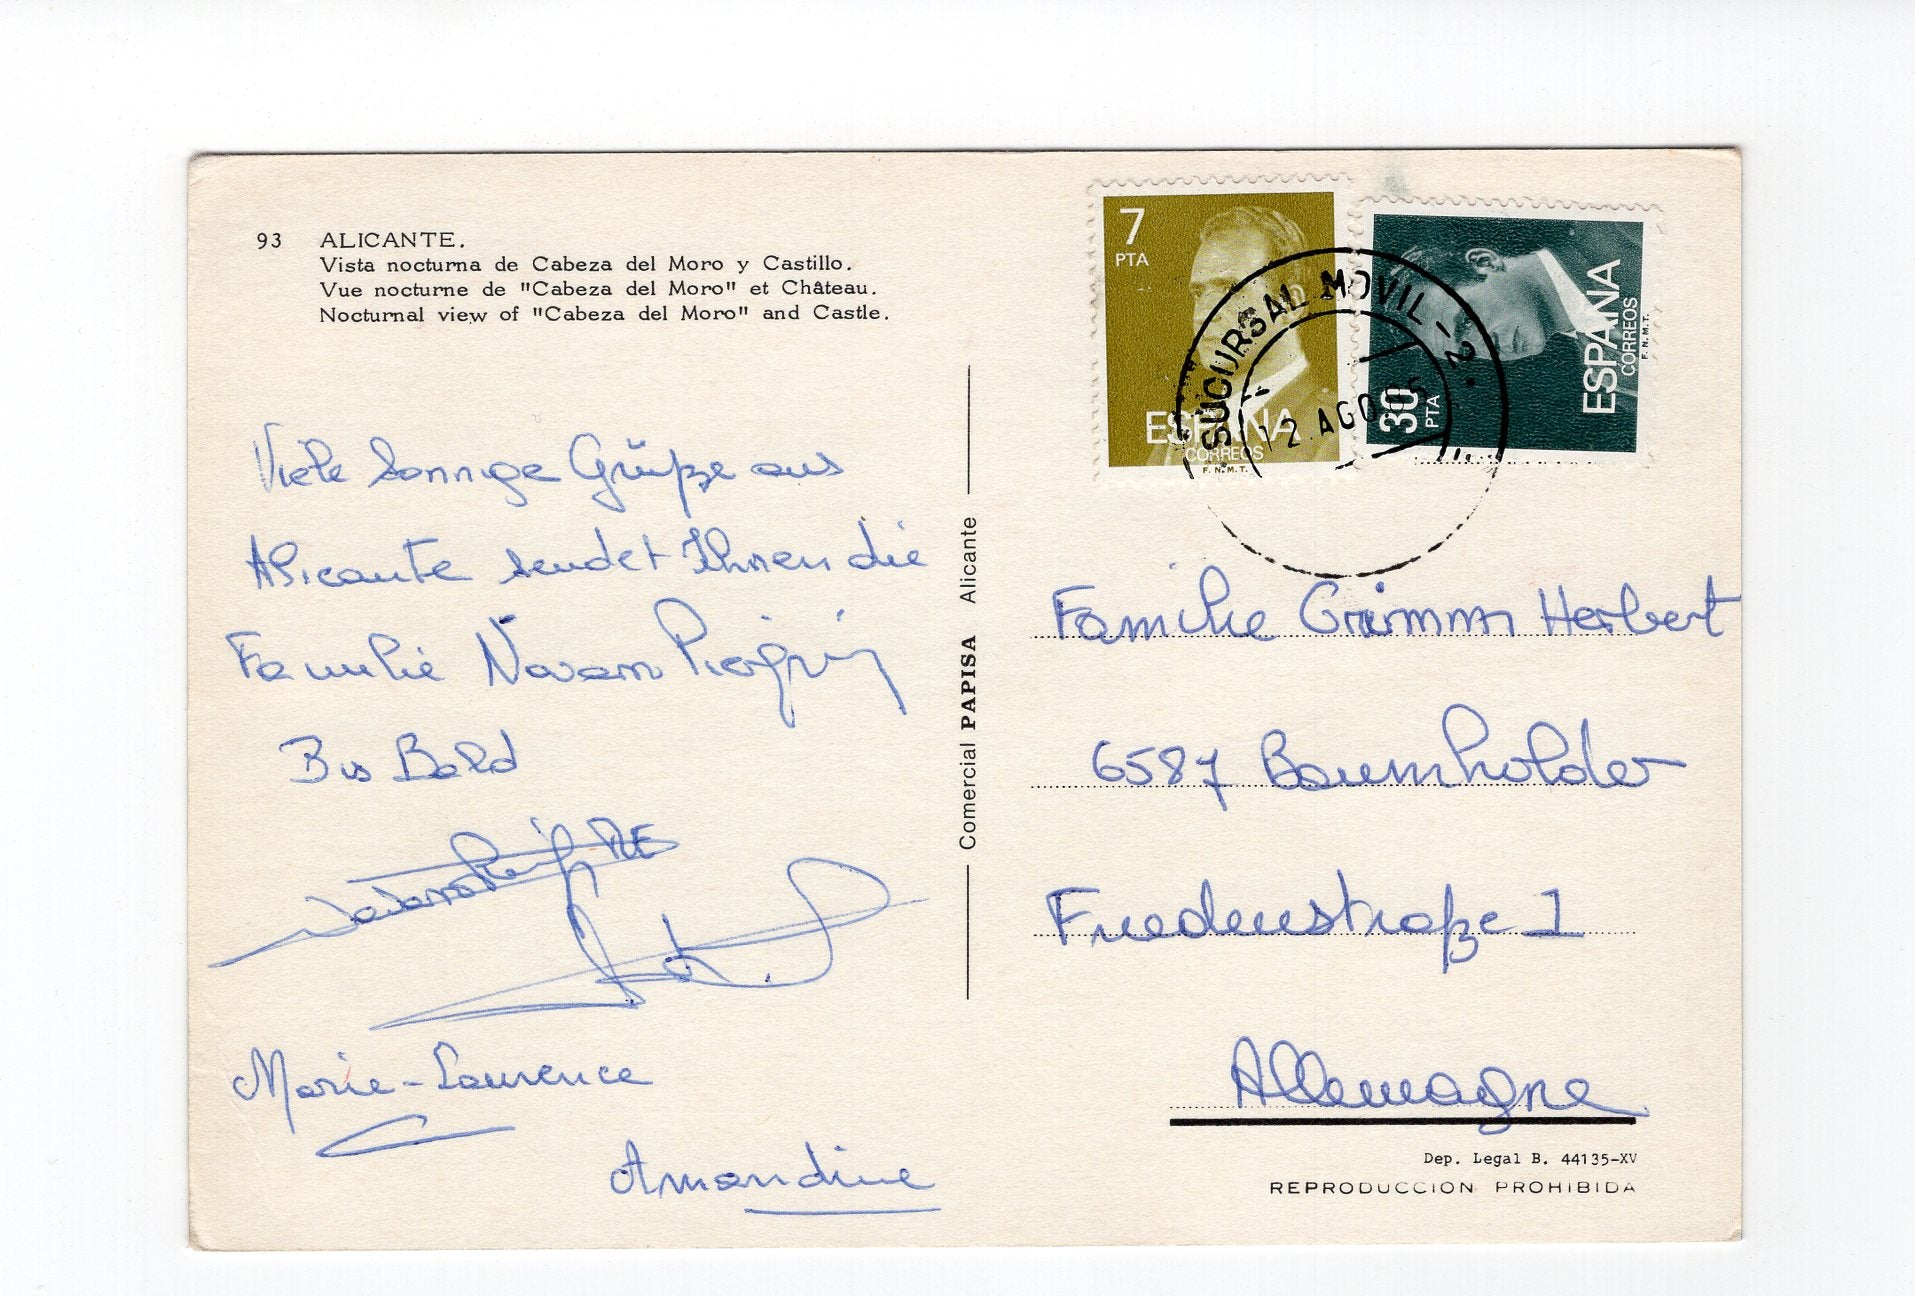 93 ALICANTE.
Vista nocturna de Cabeza del Moro y Castillo.
Vue nocturne de "Cabeza del Moro" et Château.
Nocturnal view of "Cabeza del Moro" and Castle.
Viele sonnige Grüße aus
Alicante sendet Ihnen die
Familie
Bis Bald
Marie-Laurence
Amandine
Comercial PAPISA Alicante
7
PTA
ESPAÑA
CORREOS
F.N.M.T.
30
PTA
ESPAÑA
CORREOS
F.N.M.T.
SUCURSAL MOVIL-2.
12 AGO
Familie Grimm Herbert
6587 Baumholder
Friedenstraße 1
Allemagne
Dep. Legal B. 44135-XV
REPRODUCCION PROHIBIDA